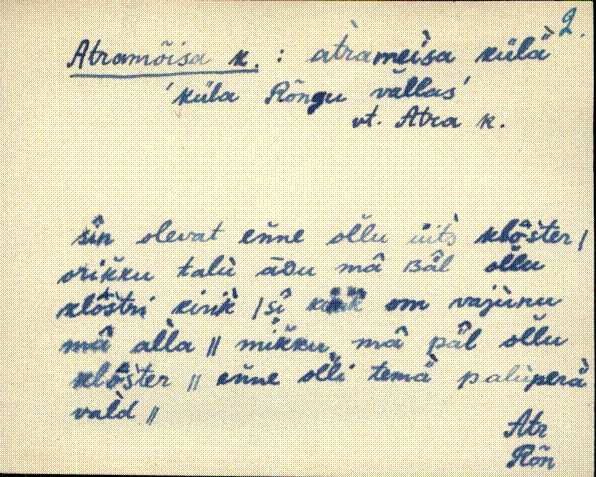 2.
Atramõisa k. : atrameìsa külä
'küla Rõngu vallas'
vt. Atra k.
sîn olevat en̆ne ol̆lu üit̀s klôster /
orikku talù aᴅu mâ ʙäl ol̆lu
klôstri kirik̀ / sî om vajùnu
mâ al̆la // mik̆ku mâ pǟl ol̆lu
klôster // en̆ne ol̆li temä palùperä
vald //
Atr
Rõn